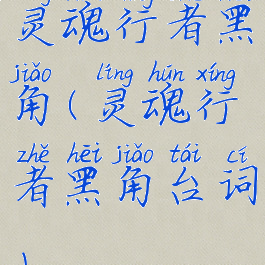 灵魂行者黑
jiǎo líng hún xíng
角(灵魂行
zhě hēi jiǎo tái cí
者黑角台词
)